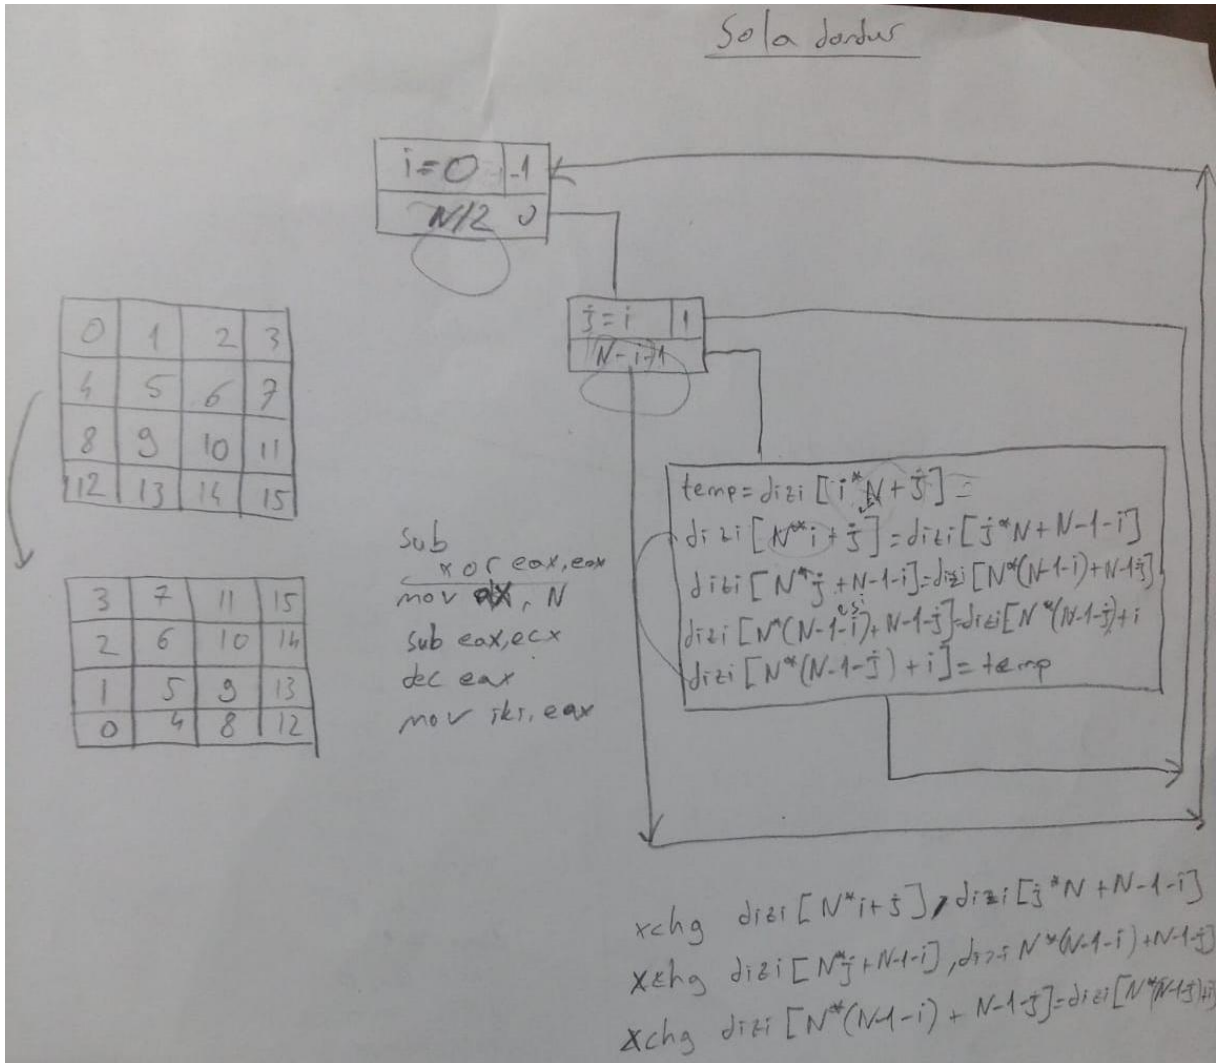 Sola döndür
i=0 -1
N/2 0
j=i 1
N-i-1
0 1 2 3
4 5 6 7
8 9 10 11
12 13 14 15
3 7 11 15
2 6 10 14
1 5 9 13
0 4 8 12
sub
xor eax,eax
mov , N
sub eax,ecx
dec eax
mov iki, eax
temp=dizi[i*N+j]=
dizi[N*i+j]=dizi[j*N+N-1-i]
dizi[N*j+N-1-i]=dizi[N*(N-1-i)+N-1-j]
dizi[N*(N-1-i)+N-1-j]=dizi[N*(N-1-j)+i
dizi[N*(N-1-j)+i]=temp
xchg dizi[N*i+j], dizi[j*N+N-1-i]
xchg dizi[N*j+N-1-i], dizi N*(N-1-i)+N-1-j]
xchg dizi[N*(N-1-i)+N-1-j]=dizi[N*(N-1-j)+i]